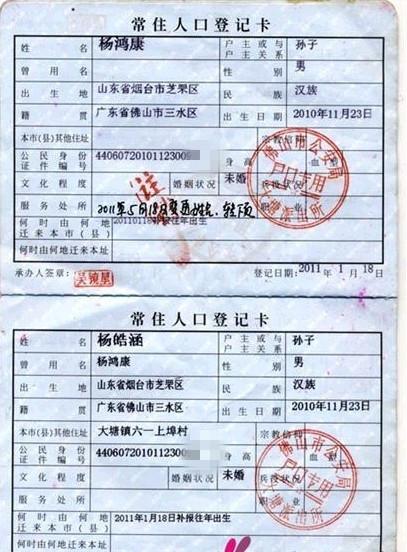 常住人口登记卡
姓名 杨鸿康 户主或与户主关系 孙子
曾用名 性别 男
出生地 山东省烟台市芝罘区 民族 汉族
籍贯 广东省佛山市三水区 出生日期 2010年11月23日
本市(县)其他住址 宗教信仰
公民身份证件编号 44060720101123009 身高 血型
文化程度 婚姻状况 未婚 兵役状况
服务处所 2011年5月18日变更姓名
何时由何地迁来本市(县) 20110118补报往年出生
何时由何地迁来本址
承办人签章: 登记日期:2011年1月18日
佛山市公安局
户口专用
大塘派出所
常住人口登记卡
姓名 杨皓涵 户主或与户主关系 孙子
曾用名 杨鸿康 性别 男
出生地 山东省烟台市芝罘区 民族 汉族
籍贯 广东省佛山市三水区 出生日期 2010年11月23日
本市(县)其他住址 大塘镇六一上埠村 宗教信仰
公民身份证件编号 4406072010112300 身高 血型
文化程度 婚姻状况 未婚 兵役状况
服务处所
何时由何地迁来本市(县) 2011年1月18日补报往年出生
何时由何地迁来本址
佛山市公安局
户口专用
大塘派出所